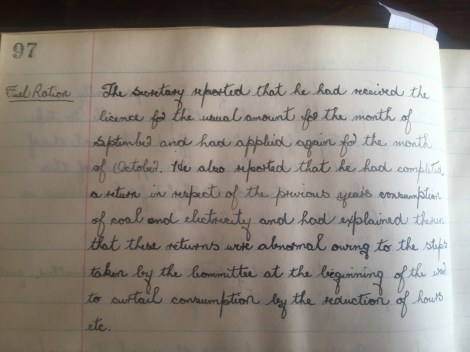 97
Fuel Ration The Secretary reported that he had received the
licence for the usual amount for the month of
September and had applied again for the month
of October. He also reported that he had completed
a return in respect of the previous years consumption
of coal and electricity and had explained therein
that these returns were abnormal owing to the steps
taken by the Committee at the beginning of the war
to curtail consumption by the reduction of hours
etc.